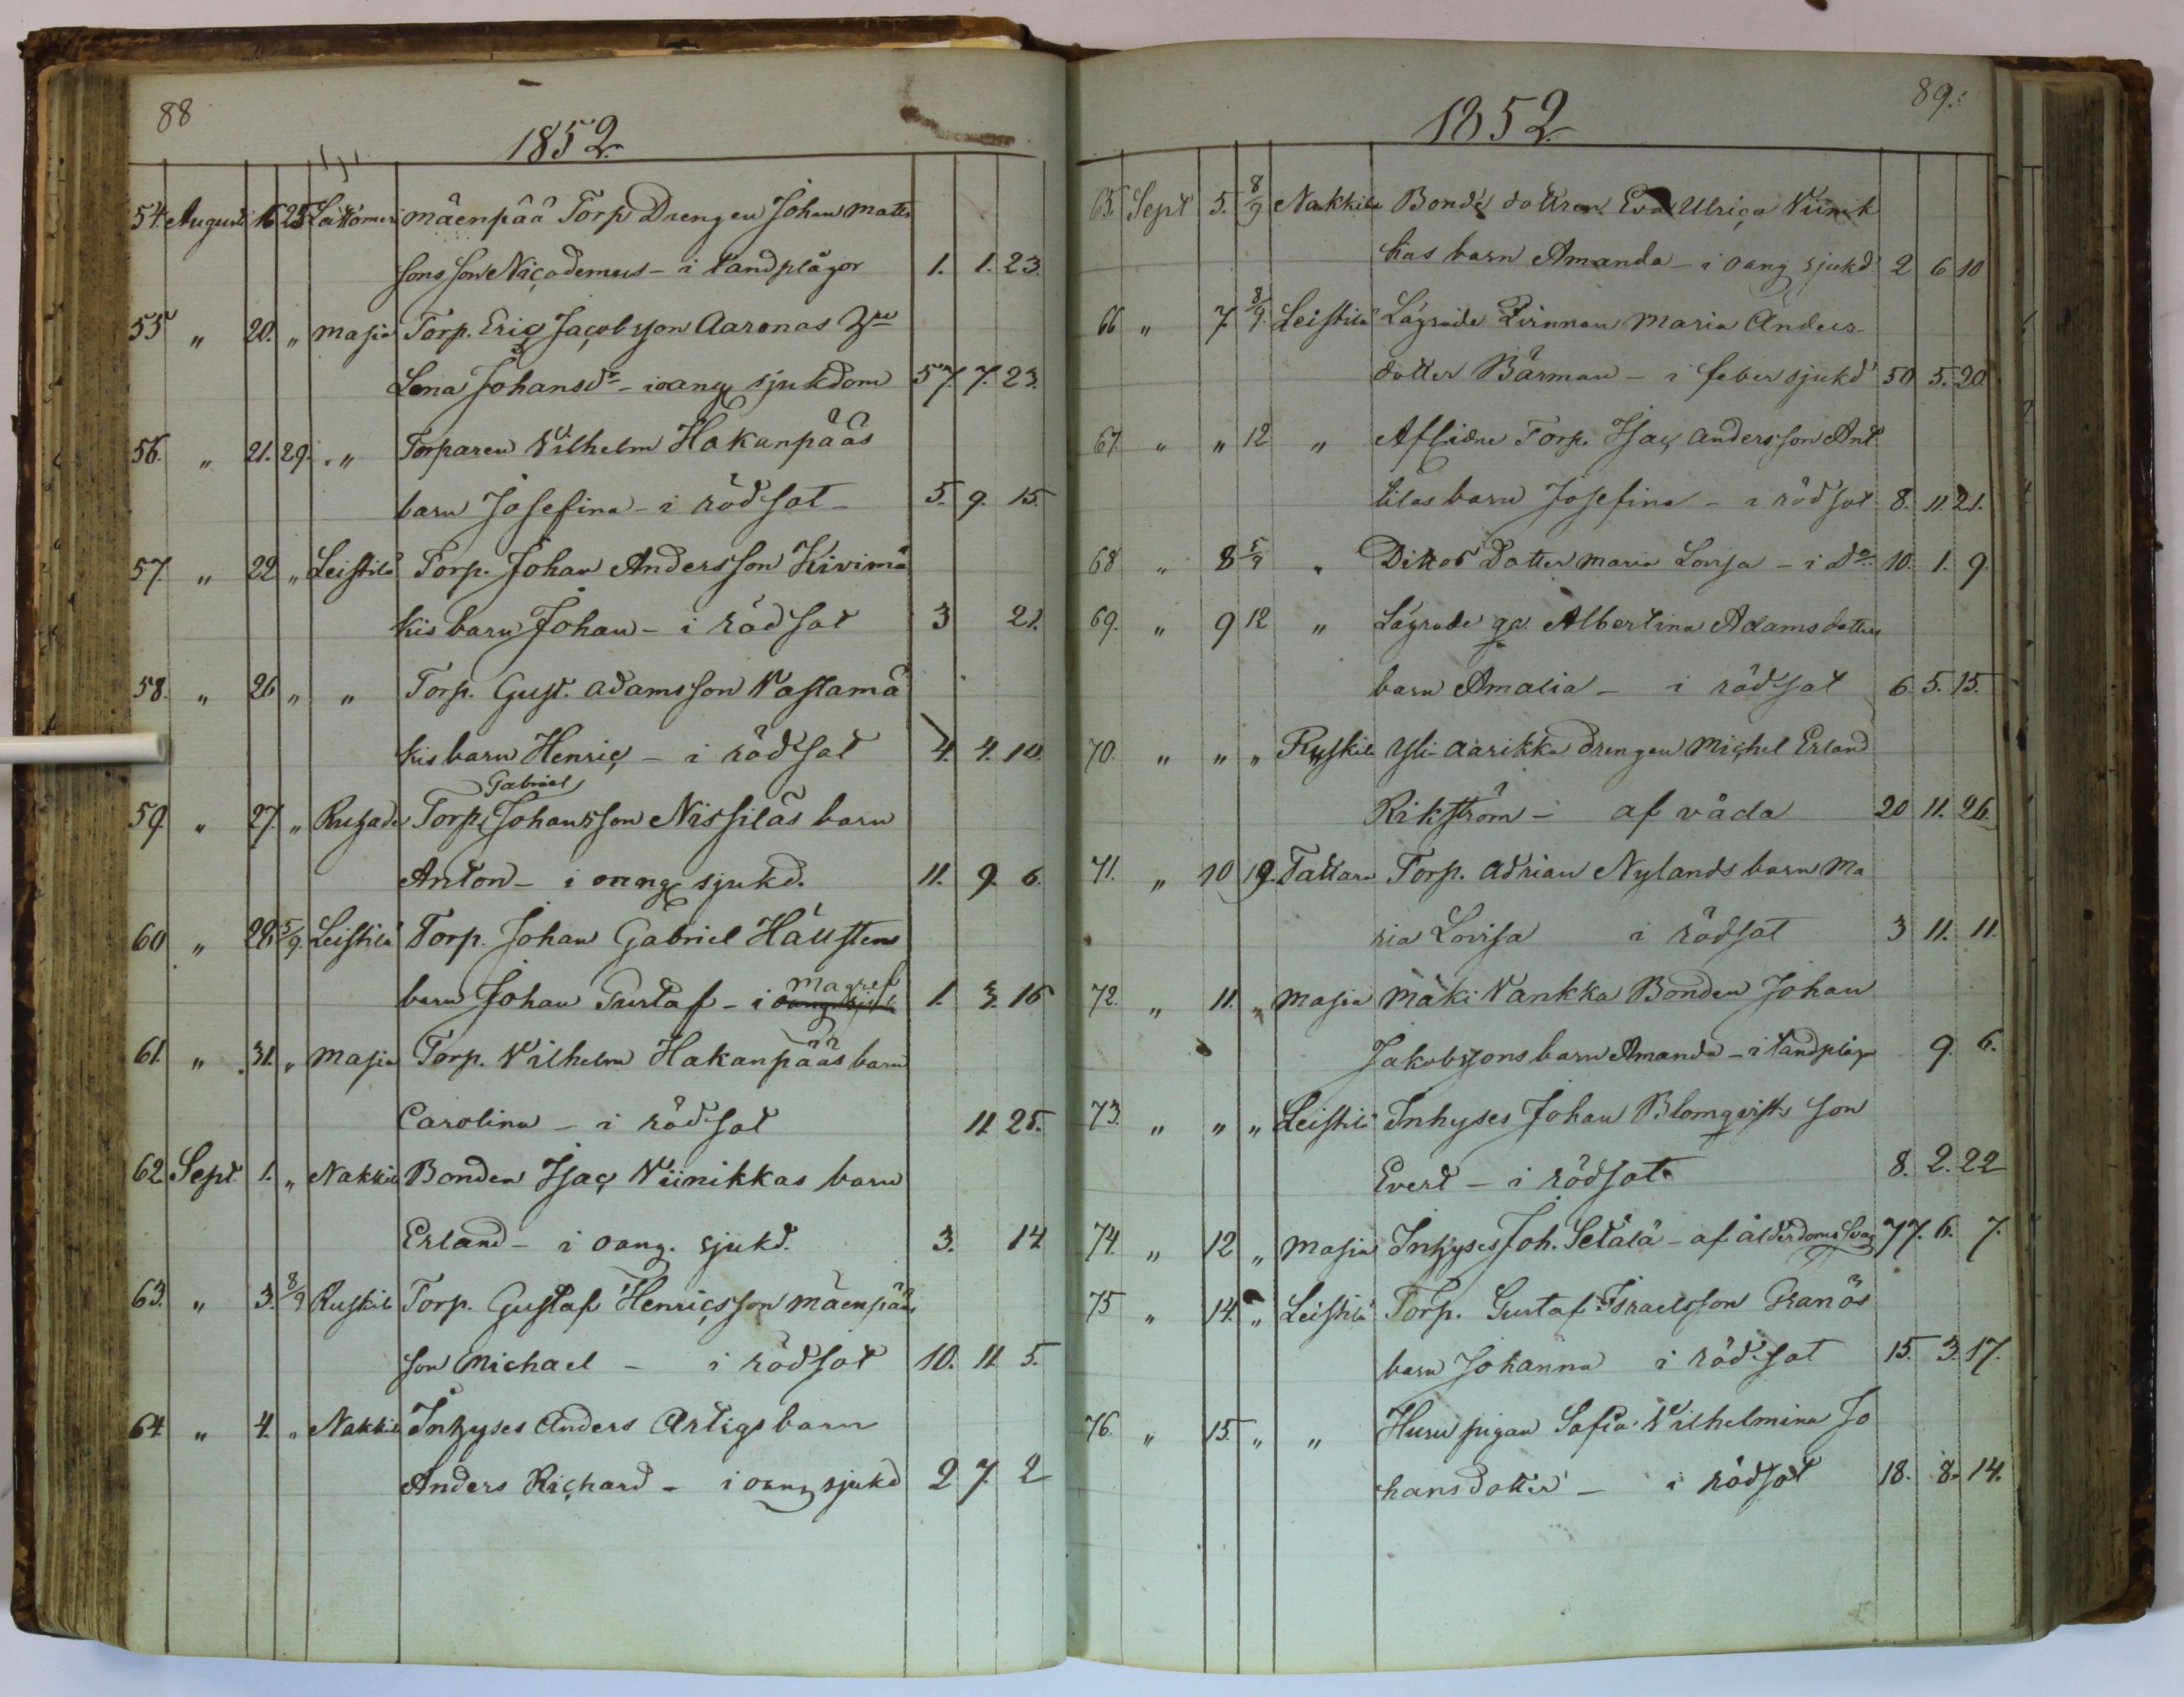 88
1852.
54. Augusti 16 25 Lattomeri mäenpää Torp Drengen Johan Matts
sons son Niçodemus - i tandplågor 1. 1. 23.
55 " 20. " Masia Torp. Eriç Jaçobsson Aaronas
Lena Johansdr - i oang sjukdom 57 7. 23.
56. " 21. 29. " Torparen Vilhelm Hakanpääs
barn Josefina - i rödsot - 5. 9. 15.
57. " 22 " Leistilä Torp. Johan Andersson Kivimä
kis barn Johan - i rödsot 3 21.
58. " 26 " " Torp. Gust. Adamsson Vastamä
kis barn Henriç - i rödsot 4. 4. 10.
Gabriel
59. " 27. " Torp. Johansson Nissiläs barn
Anton - i oang sjukd. 11. 9. 6.
60 " 28 5/9. Leistilä Torp. Johan Gabriel Häusten
magref
barn Johan Gustaf - i oang sjuk 1. 3. 16
61. " 31. " Masia Torp. Vilhelm Hakanpääs barn
Carolina - i rödsot 11 25.
62. Sept. 1. " Nakkila Bonden Isaç Viinikkas barn
Erland - i oang. sjukd. 3. 14
63. " 3. 8/9 Ruskila Torp. Gustaf Henriçsson mäenpääs
son Michael - i rödsot 10. 11 5.
64 " 4. " Nakkila Inhyses Anders Artigs barn
Anders Riçhard - i oang sjukd 2 7. 2
89.
1852.
65. Sept 5. 8/9 Nakkila Bonde dottren Eva Ulriça Viinik
kas barn Amanda - i oang sjukd 2 6 10
66 " 7 8/9. Leistilä Lägrade Maria Anders
dotter Bärman - i feber sjukd 50 5. 20.
67. " " 12 " Aflidne Torp. Isaç Andersson Ant
tilas barn Josefina - i rödsot 8. 11. 21.
68 " 8 5/9 " Dittos Dotter Maria Lovisa - i do 10. 1. 9.
69. " 9 12 " Lägrade qv. Albertina Adamsdotters
barn Amalia - i rödsot 6. 5. 15.
70. " " " Ruskila Yli-Aarikka drengen Miçhel Erland
Rikström - af våda 20 11. 26.
71. " 10 19. Tattara Torp. Adrian Nylands barn Ma
ria Lovisa i rödsot 3 11. 11.
72. " 11. " Masia Mäki Vankka Bonden Johan
Jakobssons barn Amanda - i tandplågor 9. 6.
73. " " " Leistilä Inhyses Johan Blomqvists son
Everd - i rödsot 8. 2. 22
74. " 12 " Masia Inhyses Joh. Setälä - af ålderdoms svag 77. 6. 7.
75 " 14. " Leistilä Torp. Gustaf Israelsson Granös
barn Johanna i rödsot 15. 3. 17.
76. " 15. " " Huru pigan Sofia Vilhelmina Jo
hansdotter - i rödsot 18. 8. 14.